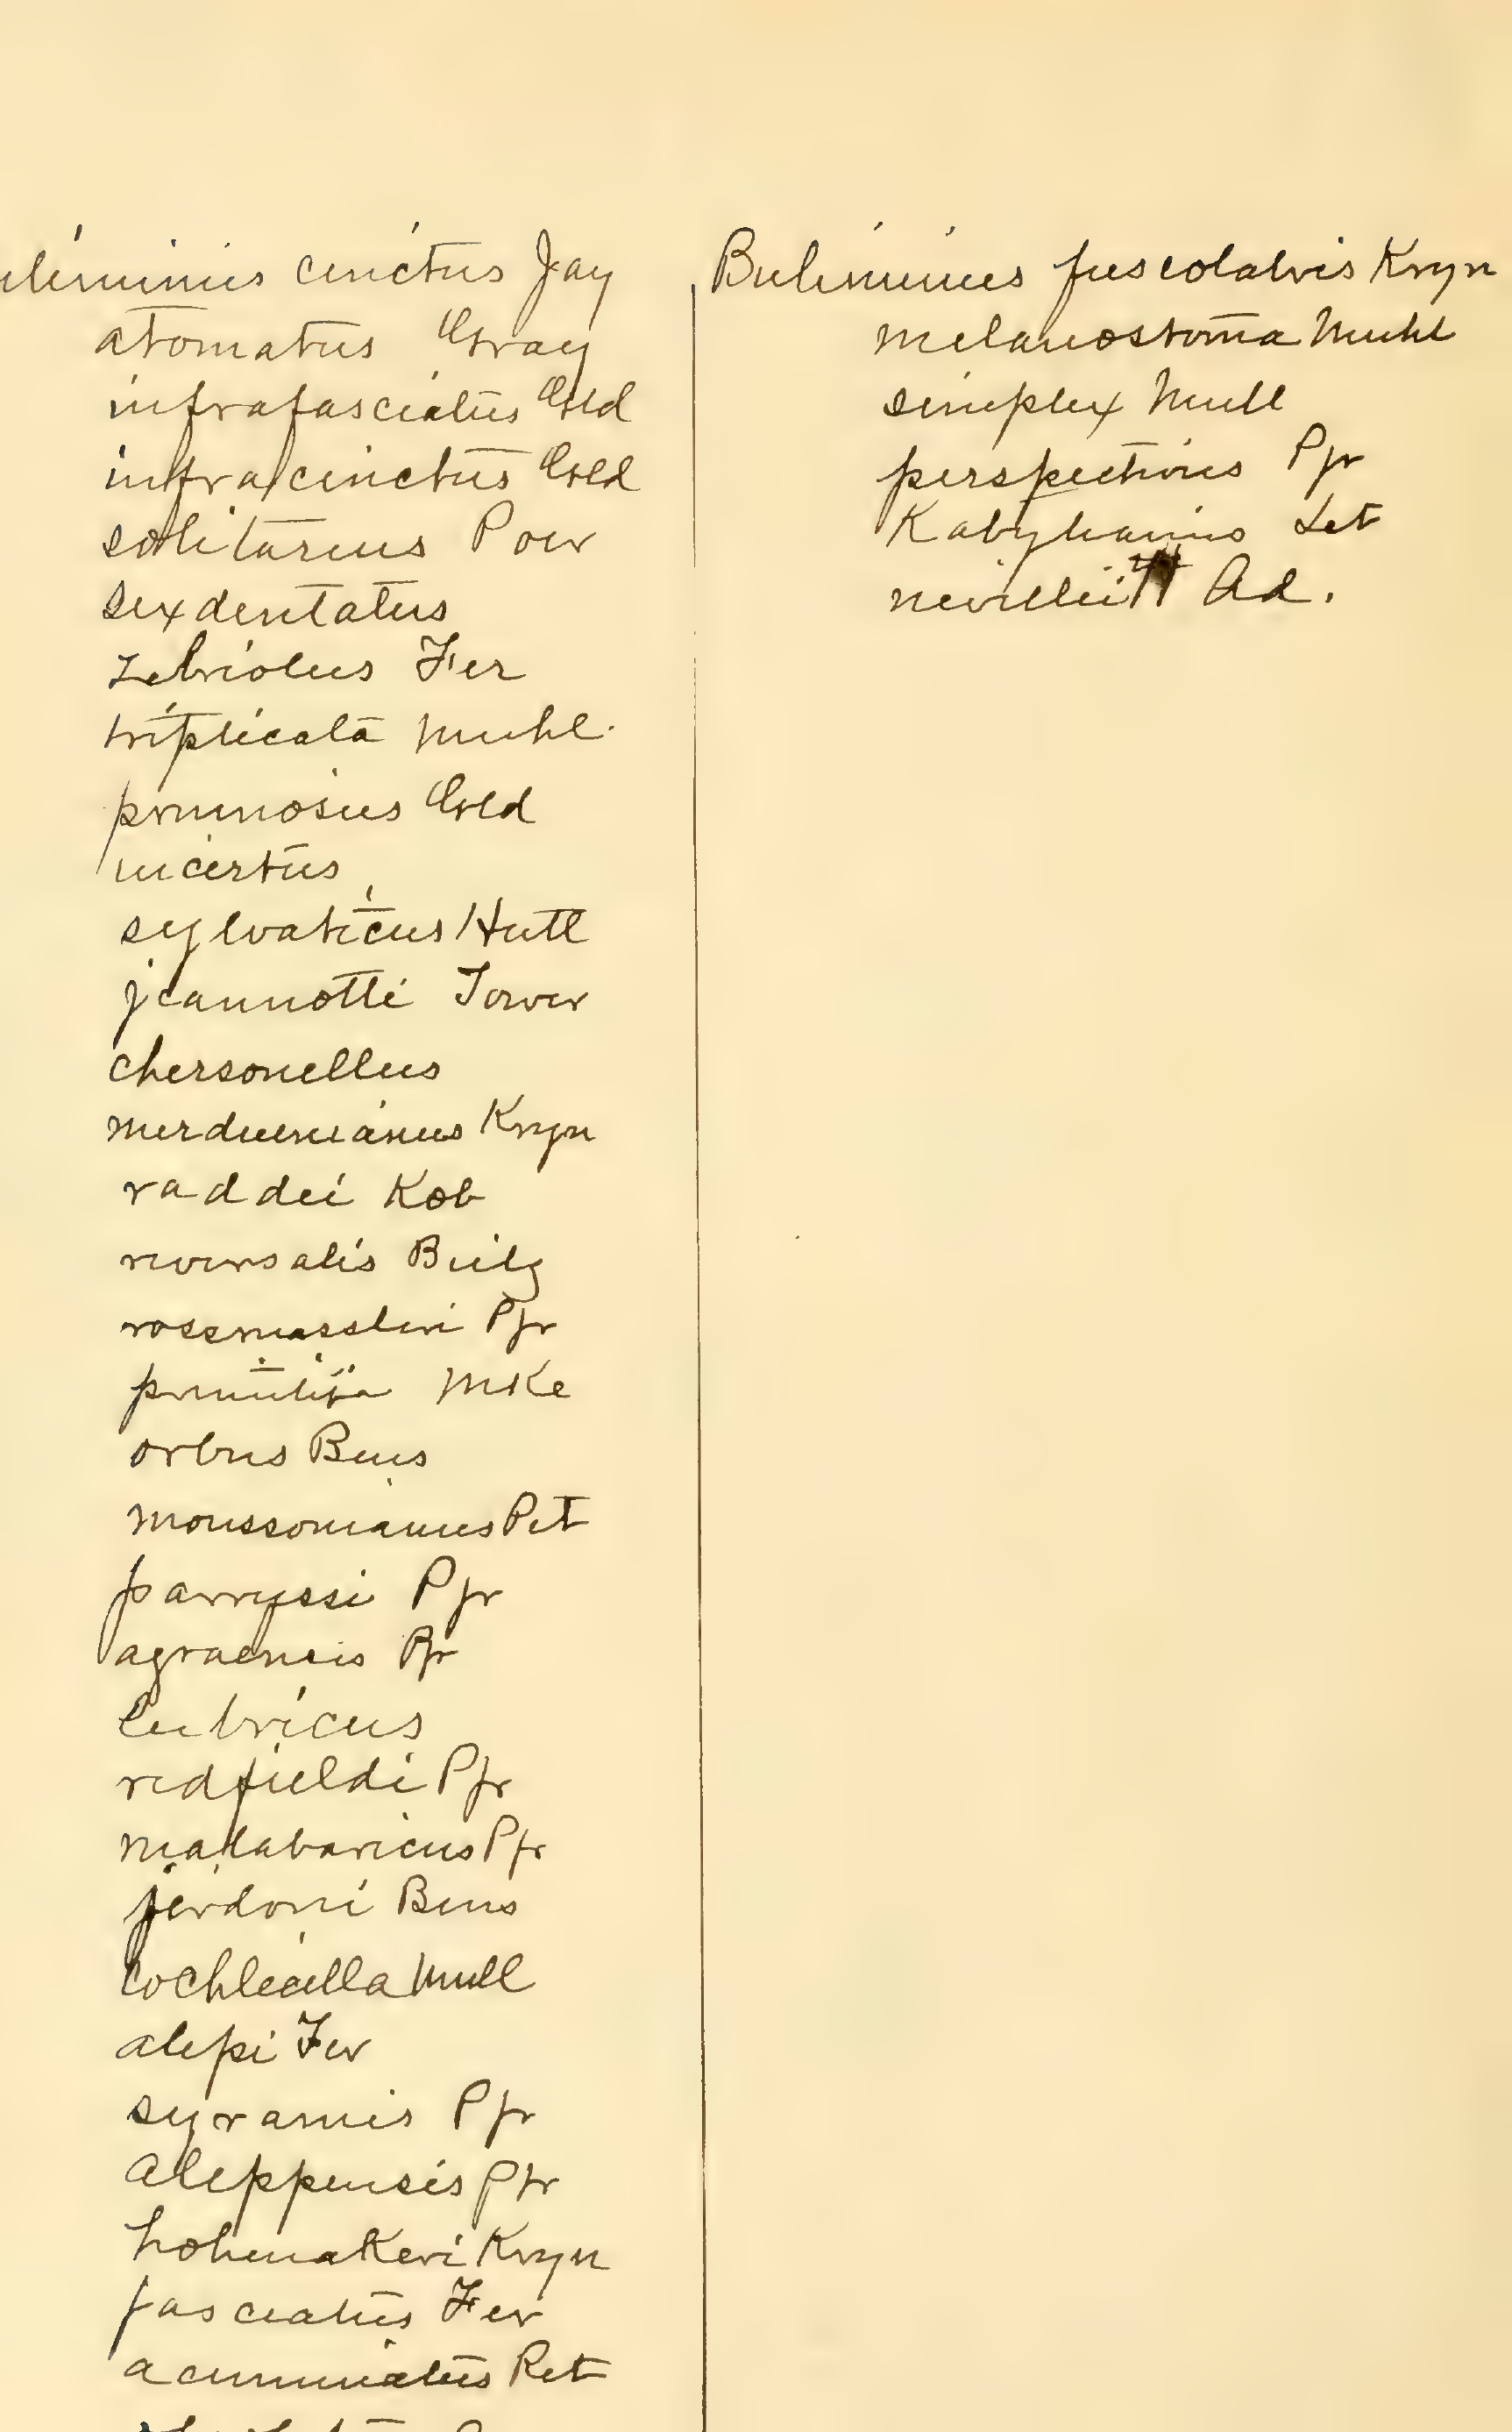 uliminius cinctus Jay
atomatus Gray
infrafasciatus Gld
infracinctus Gld
solitarius Poir
sexdentatus
zebriolus Fer
triplicata Muhl.
pruinosus Gld
incertus
sylvaticus Hutt
jeannotti Terver
chersonellus
merduenianus Kryn
raddei Kob
reversalis Bielz
rossmassleri Pfr
MKe
orbus Bens
moussonianus Pet
parryssi Pfr
agraensis Pfr
lubricus
redfieldi Pfr
malabaricus Pfr
jerdoni Bens
cochlicella Mull
alepi Fer
Pfr
aleppensis Pfr
hohenakeri Kryn
fasciatus Fer
acuminatus Ret
Buliminus fuscolabris Kryn
melanostoma Muhl
simplex Mull
perspectivus Pfr
Kabylianus Let
nevillei Ad.